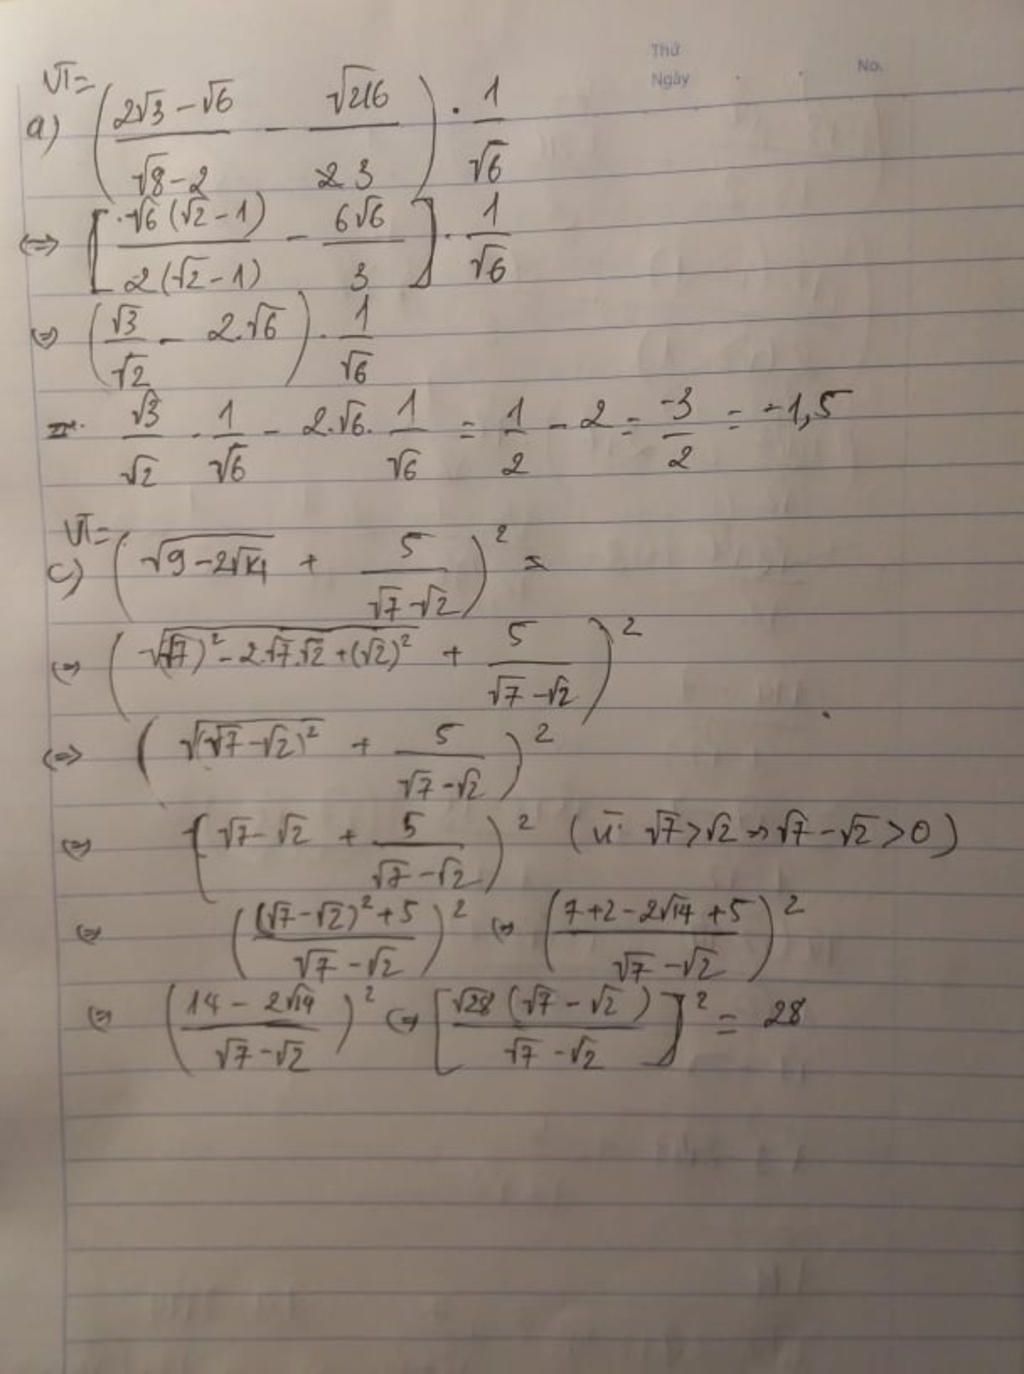 Thứ
Ngày
No.
VT=
a) ( (2√3 - √6)/(√8 - 2) - √216/3 ) · 1/√6
(=) [ √6(√2 - 1)/2(√2 - 1) - 6√6/3 ] · 1/√6
(=) ( √3/√2 - 2.√6 ) · 1/√6
√3/√2 · 1/√6 - 2.√6. 1/√6 = 1/2 - 2 = -3/2 = -1,5
VT=
c) ( √(9 - 2√14) + 5/(√7 - √2) )² =
(=) ( √((√7)² - 2.√7.√2 + (√2)²) + 5/(√7 - √2) )²
(=) ( √((√7 - √2)²) + 5/(√7 - √2) )²
(=) ( √7 - √2 + 5/(√7 - √2) )² (vì √7 > √2 => √7 - √2 > 0)
(=) ( ((√7 - √2)² + 5)/(√7 - √2) )² (=) ( (7 + 2 - 2√14 + 5)/(√7 - √2) )²
(=) ( (14 - 2√14)/(√7 - √2) )² (=) [ √28(√7 - √2)/(√7 - √2) ]² = 28